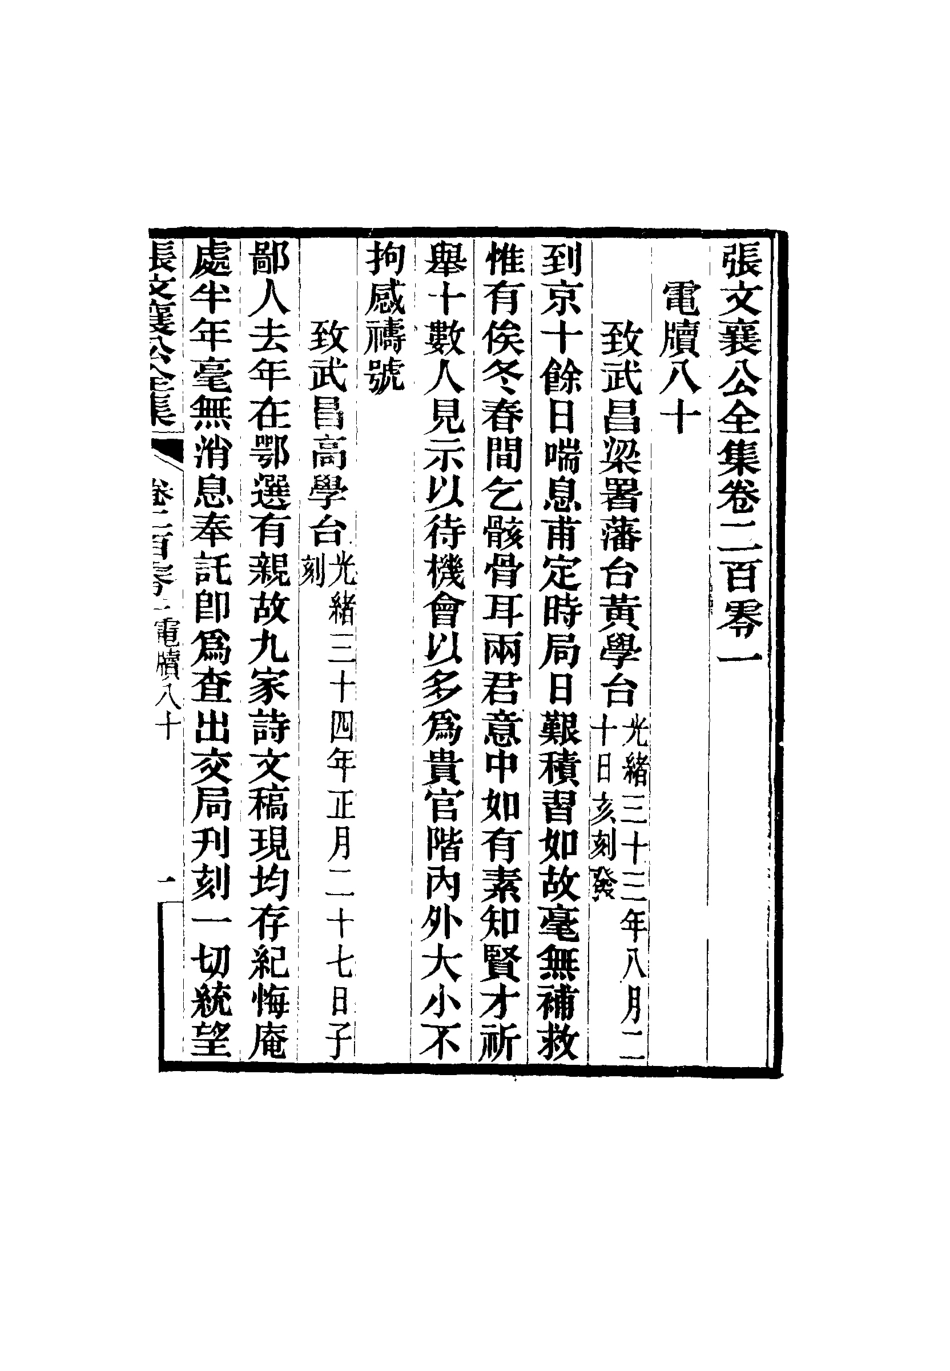 張文襄公全集卷二百零一
電牘八十
致武昌梁署藩台黃學台光緒三十三年八月二十日亥刻發
到京十餘日喘息甫定時局日艱積習如故毫無補救
惟有俟冬春間乞骸骨耳兩君意中如有素知賢才祈
舉十數人見示以待機會以多為貴官階內外大小不
拘感禱號
致武昌高學台光緒三十四年正月二十七日子刻
鄙人去年在鄂選有親故九家詩文稿現均存紀悔庵
處半年毫無消息奉託卽為查出交局刋刻一切統望
張文襄公全集 卷二百零一 電牘八十 一